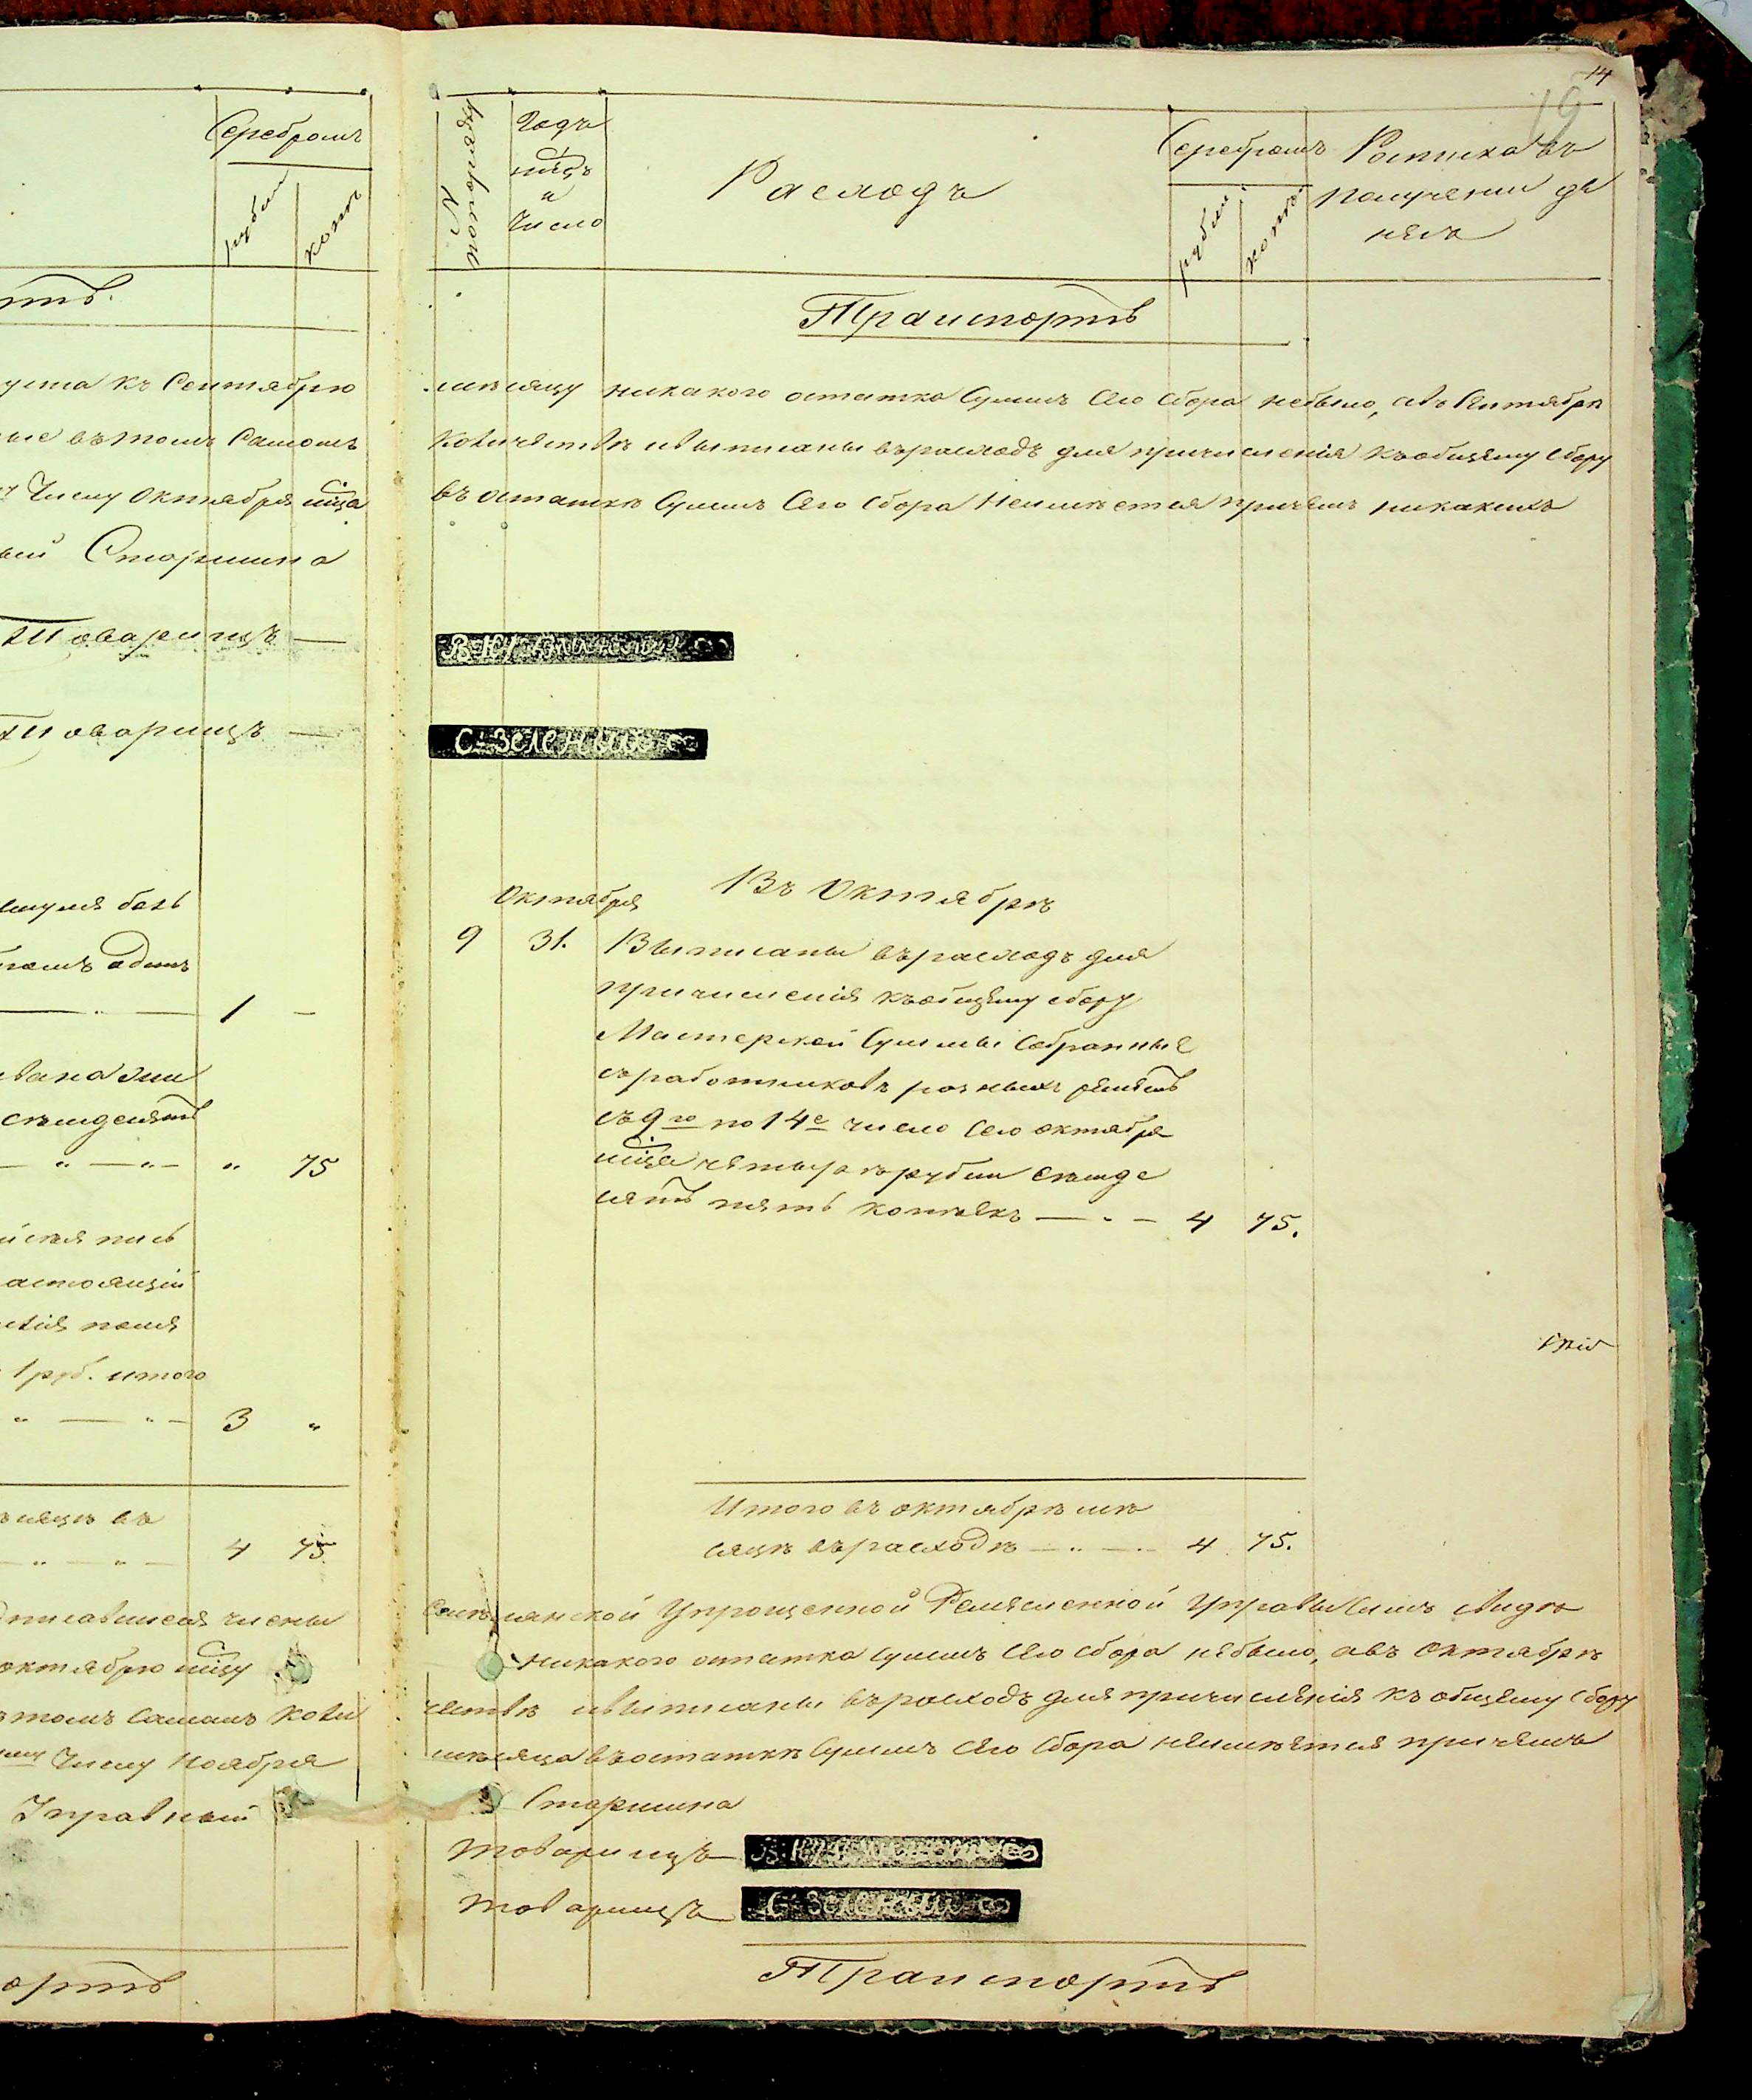 Серебромъ
рубли
копѣ
ртъ.
уста къ Сентябрю
ые въ томъ самомъ
Числу октября мца
Старшина
Товарищъ —
Товарищъ —
безъ
одинъ
1 —
семдесятъ
" 75
астоящій
1 руб. итого
3 "
въ
4 75
писавшеся члены
октябрю мцу
томъ самомъ коли
Числу Ноября
Управный
ортъ
14
19
№ по порядку
Годъ
мцъ
и
Число
Расходъ
Серебромъ
рубли
копѣ
Росписка въ
получении де
негъ
Транспортъ
мѣсяцу никакого остатка Суммъ Сего Сбора небыло, авъ Сентябрѣ
количествѣ ивыписаны върасходъ для причисленія къобщему Сбору
въ остаткѣ Суммъ Сего Сбора Неимѣется причемъ никакихъ
С-Зеленымъ
Въ Октябрѣ
Октября
9 31. Выписаны върасходъ для
причисленія къобщему сбору
Мастерской Суммы Собранные
съработниковъ розныхъ ремѣслъ
съ 9го по 14е число Сего октября
мца четыре рубли семде
сятъ пять копѣекъ — 4 75.
Итого въ октябрѣ мѣ
сяцѣ върасходѣ — 4 75.
Упрощенной Ремесленной Управы Симъ
никакого остатка суммъ Сего сбора небыло, авъ Октябрѣ
чествѣ ивыписаны върасходъ для причисленія къ общему Сбору
мѣсяца въостаткѣ Суммъ Сего Сбора неимѣется причемъ
Старшина
Товарищъ
Товарищъ С-Зеленымъ
Транспортъ